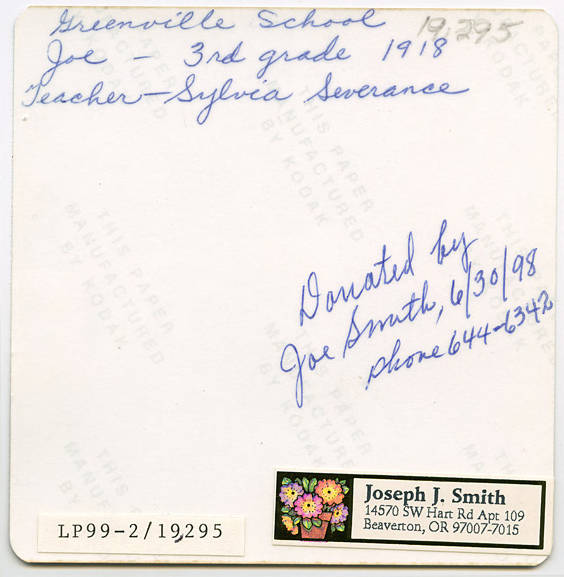 Greenville School
19,295
Joe - 3rd grade 1918
Teacher - Sylvia Severance
THIS PAPER
MANUFACTURED
BY KODAK
THIS PAPER
MANUFACTURED
BY KODAK
Donated by
Joe Smith, 6/30/98
phone 644-6342
Joseph J. Smith
14570 SW Hart Rd Apt 109
Beaverton, OR 97007-7015
LP99-2/19,295